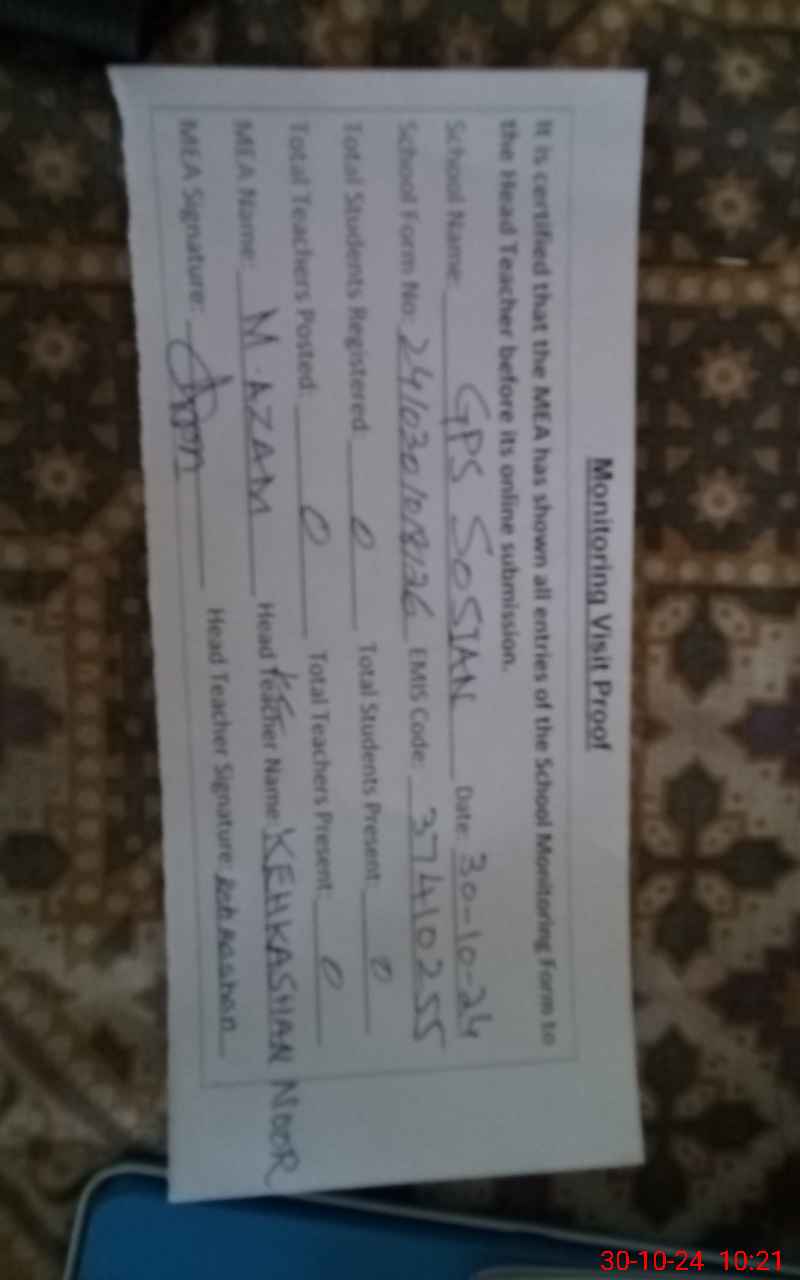 Monitoring Visit Proof
It is certified that the MEA has shown all entries of the School Monitoring Form to
the Head Teacher before its online submission.
School Name: GPS SOSIAN Date: 30-10-24
School Form No: EMIS Code: 37410255
Total Students Registered: 0 Total Students Present: 0
Total Teachers Posted: 0 Total Teachers Present: 0
MEA Name: M. AZAM Head Teacher Name: KEHKASHAN NOOR
MEA Signature: Head Teacher Signature:
30-10-24 10:21